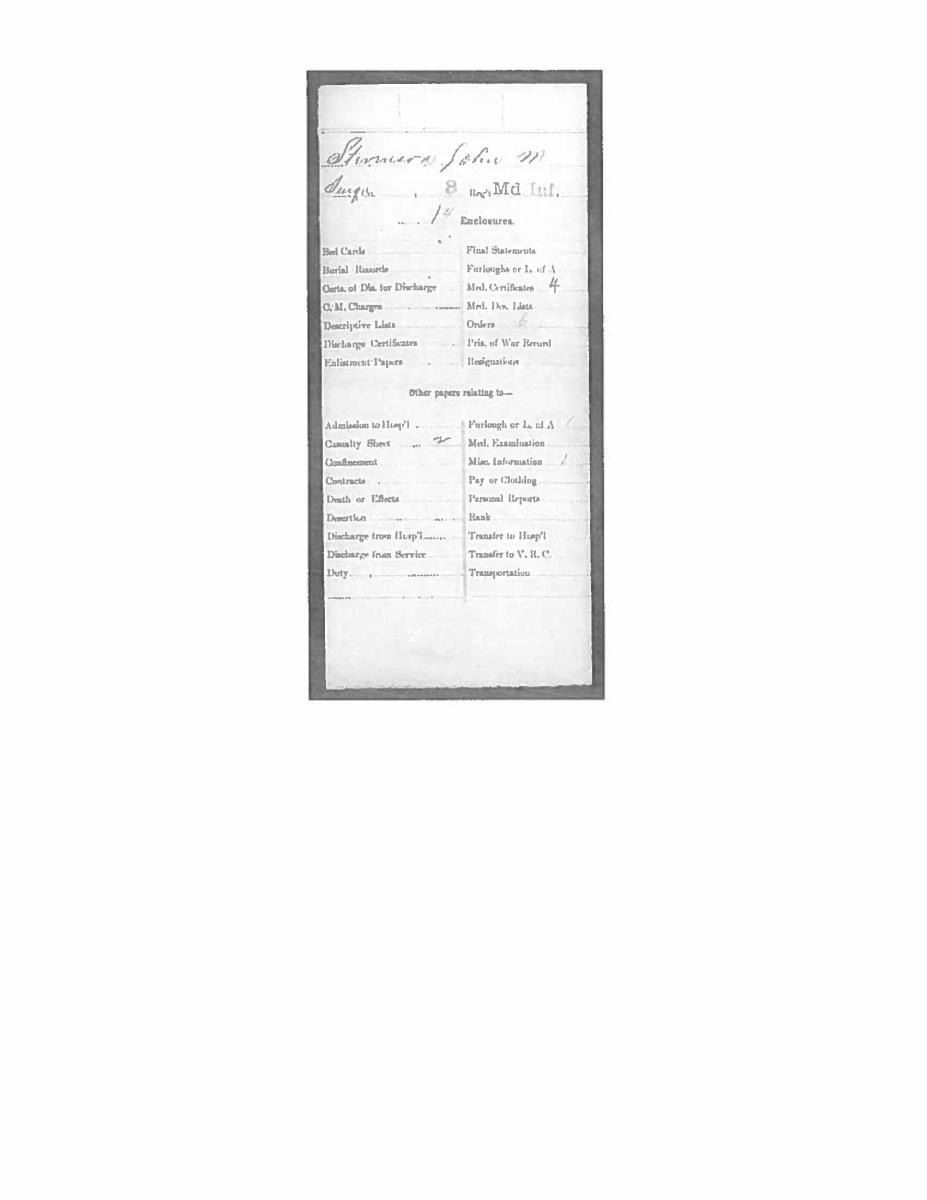 John M
Surg Co. , 8 Reg't Md Inf.
14 Enclosures.
Bed Cards
Burial Records
Certs. of Dis. for Discharge
C. M. Charges
Descriptive Lists
Discharge Certificates
Enlistment Papers
Final Statements
Furloughs or L. of A
Med. Certificates 4
Med. Des. Lists
Orders 6
Pris. of War Record
Resignations
Other papers relating to—
Admission to Hosp'l
Casualty Sheet 2
Confinement
Contracts
Death or Effects
Desertion
Discharge from Hosp'l
Discharge from Service
Duty
Furlough or L. of A
Med. Examination
Misc. Information 1
Pay or Clothing
Personal Reports
Rank
Transfer to Hosp'l
Transfer to V. R. C.
Transportation